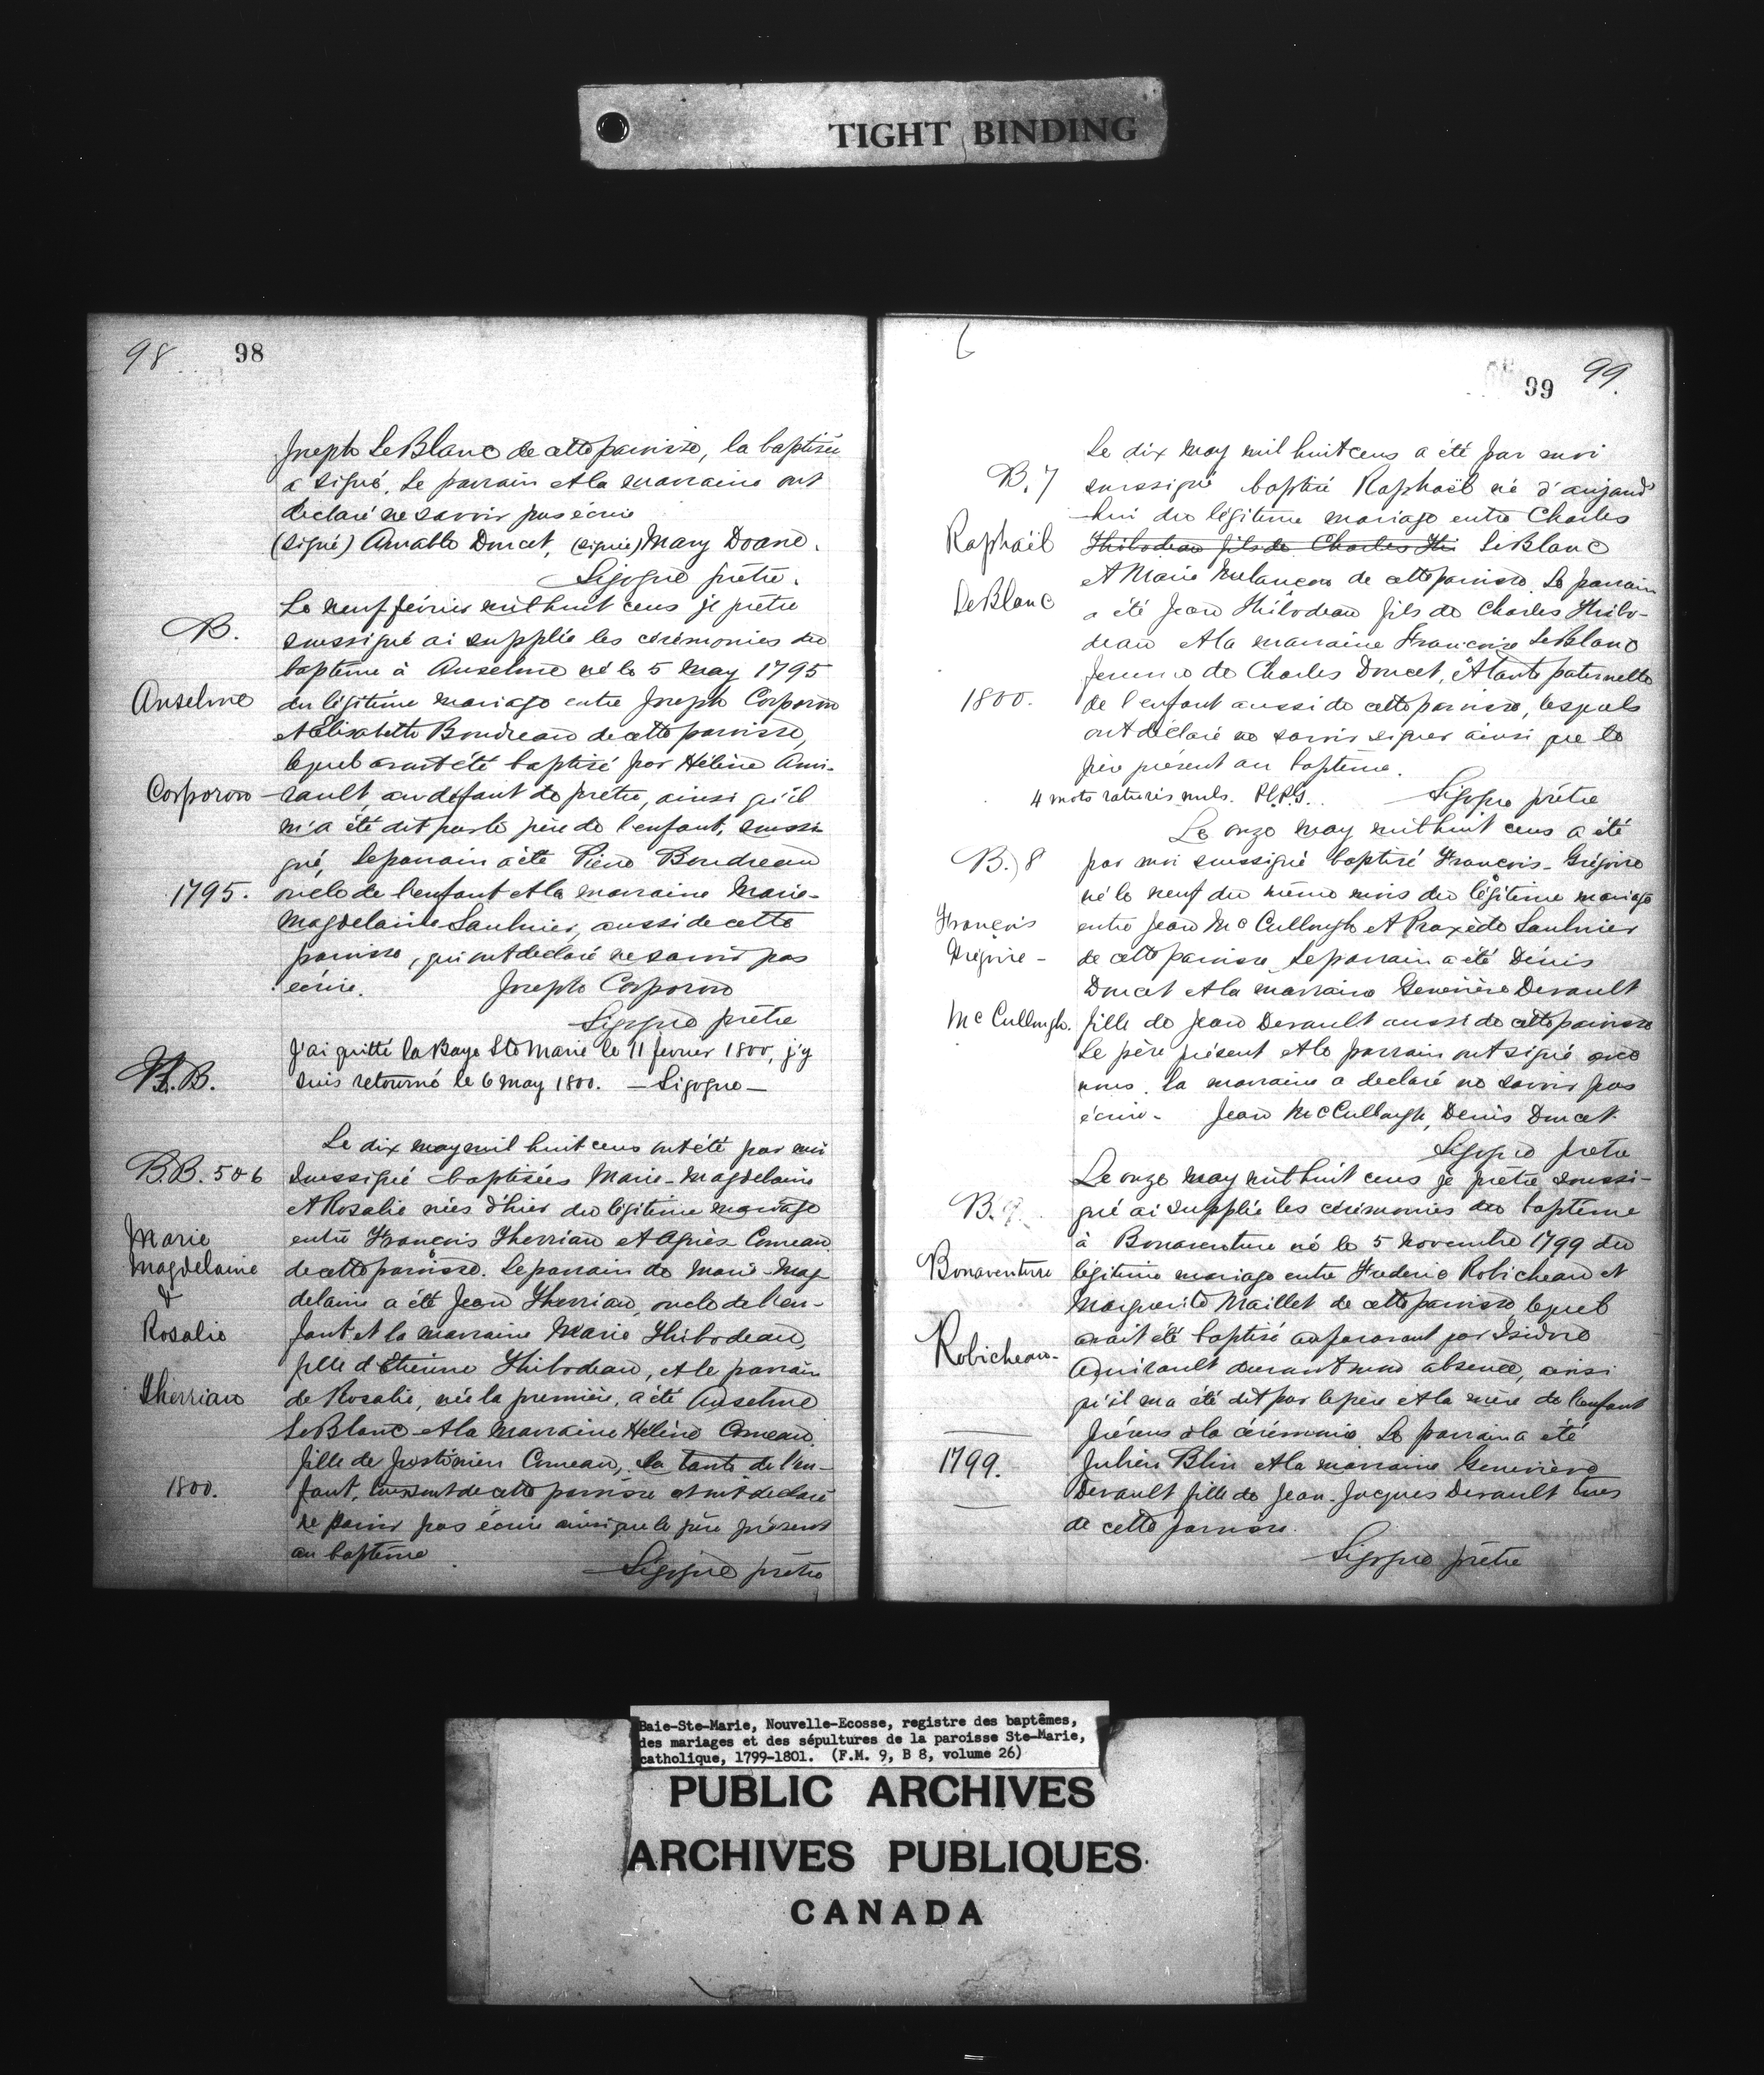 TIGHT BINDING
98 98
Joseph LeBlanc de cette paroisse, la baptisée
a signé. Le parrain et la marraine ont
déclaré ne savoir pas écrire
(signé) Amable Doucet, (signée) Mary Doane.
Sigogne prêtre.
Le neuf février mil huit cens je prêtre
B.
soussigné ai supplée les cérémonies du
baptême à Anselme né le 5 May 1795
Anselme
du légitime mariage entre Joseph Corporon
et Elisabette Boudreau de cette paroisse,
lequel avait été baptisé par Hélène Ami-
Corporon
rault, au défaut de prêtre, ainsi qu'il
m'a été dit par le père de l'enfant, soussi-
gné, le parrain a été Pierre Boudreau
1795.
oncle de l'enfant et la marraine Marie-
Magdelaine Saulnier, aussi de cette
paroisse, qui ont déclaré ne savoir pas
écrire. Joseph Corporon
Sigogne prêtre
J'ai quitté la Baye Ste Marie le 11 fevrier 1800, j'y
B.B.
suis retourné le 6 may 1800. — Sigogne —
Le dix may mil huit cens ont été par moi
B.B. 5 & 6
soussigné baptisées Marie-Magdelaine
et Rosalie nées d'hier du légitime mariage
Marie
entre François Therriau et Agnès Comeau
Magdelaine
de cette paroisse. Le parrain de Marie-Mag-
&
delaine a été Jean Therriau, oncle de l'en-
Rosalie
fant et la marraine Marie Thibodeau,
fille d'Etienne Thibodeau, et le parrain
Therriau
de Rosalie, née la première, a été Anselme
LeBlanc et la marraine Hélène Comeau
fille de Justinien Comeau, la tante de l'en-
1800.
fant, tous sont de cette paroisse et ont déclaré
ne savoir pas écrire ainsi que le père présent
au baptême
Sigogne prêtre
6 99 99.
Le dix may mil huit cens a été par moi
B. 7
soussigné baptisé Raphaël né d'aujourd'
hui du légitime mariage entre Charles
Raphaël
Thibodeau fils de Charles Thi LeBlanc
et Marie Melançon de cette paroisse. Le parrain
LeBlanc
a été Jean Thibodeau fils de Charles Thibo-
deau et la marraine Françoise LeBlanc
femme de Charles Doucet, et tante paternelle
1800.
de l'enfant aussi de cette paroisse, lesquels
ont déclaré ne savoir signer ainsi que le
père présent au baptême.
4 mots raturés nuls. Sigogne prêtre
Le onze may mil huit cens a été
B. 8
par moi soussigné baptisé François-Grégoire
né le neuf du même mois du légitime mariage
François
entre Jean McCullough et Praxède Saulnier
Grégoire -
de cette paroisse. Le parrain a été Dénis
Doucet et la marraine Geneviève Devault
McCullough.
fille de Jean Devault aussi de cette paroisse
Le père présent et le parrain ont signé avec
nous. la marraine a declaré ne savoir pas
écrire. Jean McCullough, Denis Doucet.
Sigogne prêtre
Le onze may mil huit cens je prêtre soussi-
B. 9.
gné ai supplée les cérémonies du baptême
à Bonaventure né le 5 Novembre 1799 du
Bonaventure
légitime mariage entre Frederic Robicheau et
Marguerite Maillet de cette paroisse lequel
avait été baptisé auparavant par Isidore
Robicheau-
Amirault durant mon absence, ainsi
qu'il m'a été dit par le père et la mère de l'enfant
présens à la cérémonie. Le parrain a été
1799.
Julien Blin et la marraine Geneviève
Devault fille de Jean-Jacques Devault tous
de cette paroisse.
Sigogne prêtre
Baie-Ste-Marie, Nouvelle-Ecosse, registre des baptêmes,
des mariages et des sépultures de la paroisse Ste-Marie,
catholique, 1799-1801. (F.M. 9, B 8, volume 26)
PUBLIC ARCHIVES
ARCHIVES PUBLIQUES
CANADA